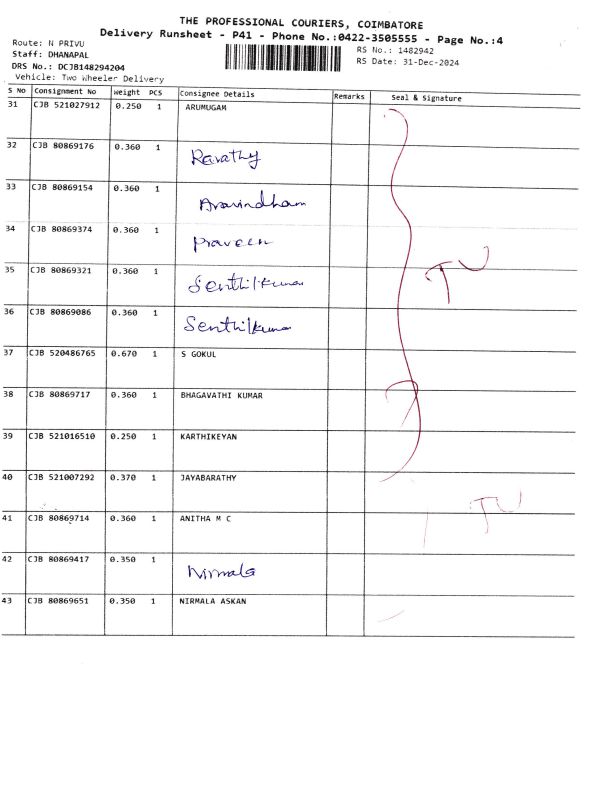 THE PROFESSIONAL COURIERS, COIMBATORE
Delivery Runsheet - P41 - Phone No.:0422-3505555 - Page No.:4
Route: N PRIVU
RS No.: 1482942
Staff: DHANAPAL
RS Date: 31-Dec-2024
DRS No.: DCJB148294204
Vehicle: Two Wheeler Delivery
S No Consignment No Weight PCS Consignee Details Remarks Seal & Signature
31 CJB 521027912 0.250 1 ARUMUGAM
32 CJB 80869176 0.360 1 Revathy
33 CJB 80869154 0.360 1 Aravindham
34 CJB 80869374 0.360 1 Praveen
35 CJB 80869321 0.360 1 Senthilkumar
36 CJB 80869086 0.360 1 Senthilkumar
37 CJB 520486765 0.670 1 S GOKUL
38 CJB 80869717 0.360 1 BHAGAVATHI KUMAR
39 CJB 521016510 0.250 1 KARTHIKEYAN
40 CJB 521007292 0.370 1 JAYABARATHY
41 CJB 80869714 0.360 1 ANITHA M C
42 CJB 80869417 0.350 1 Nirmala
43 CJB 80869651 0.350 1 NIRMALA ASKAN